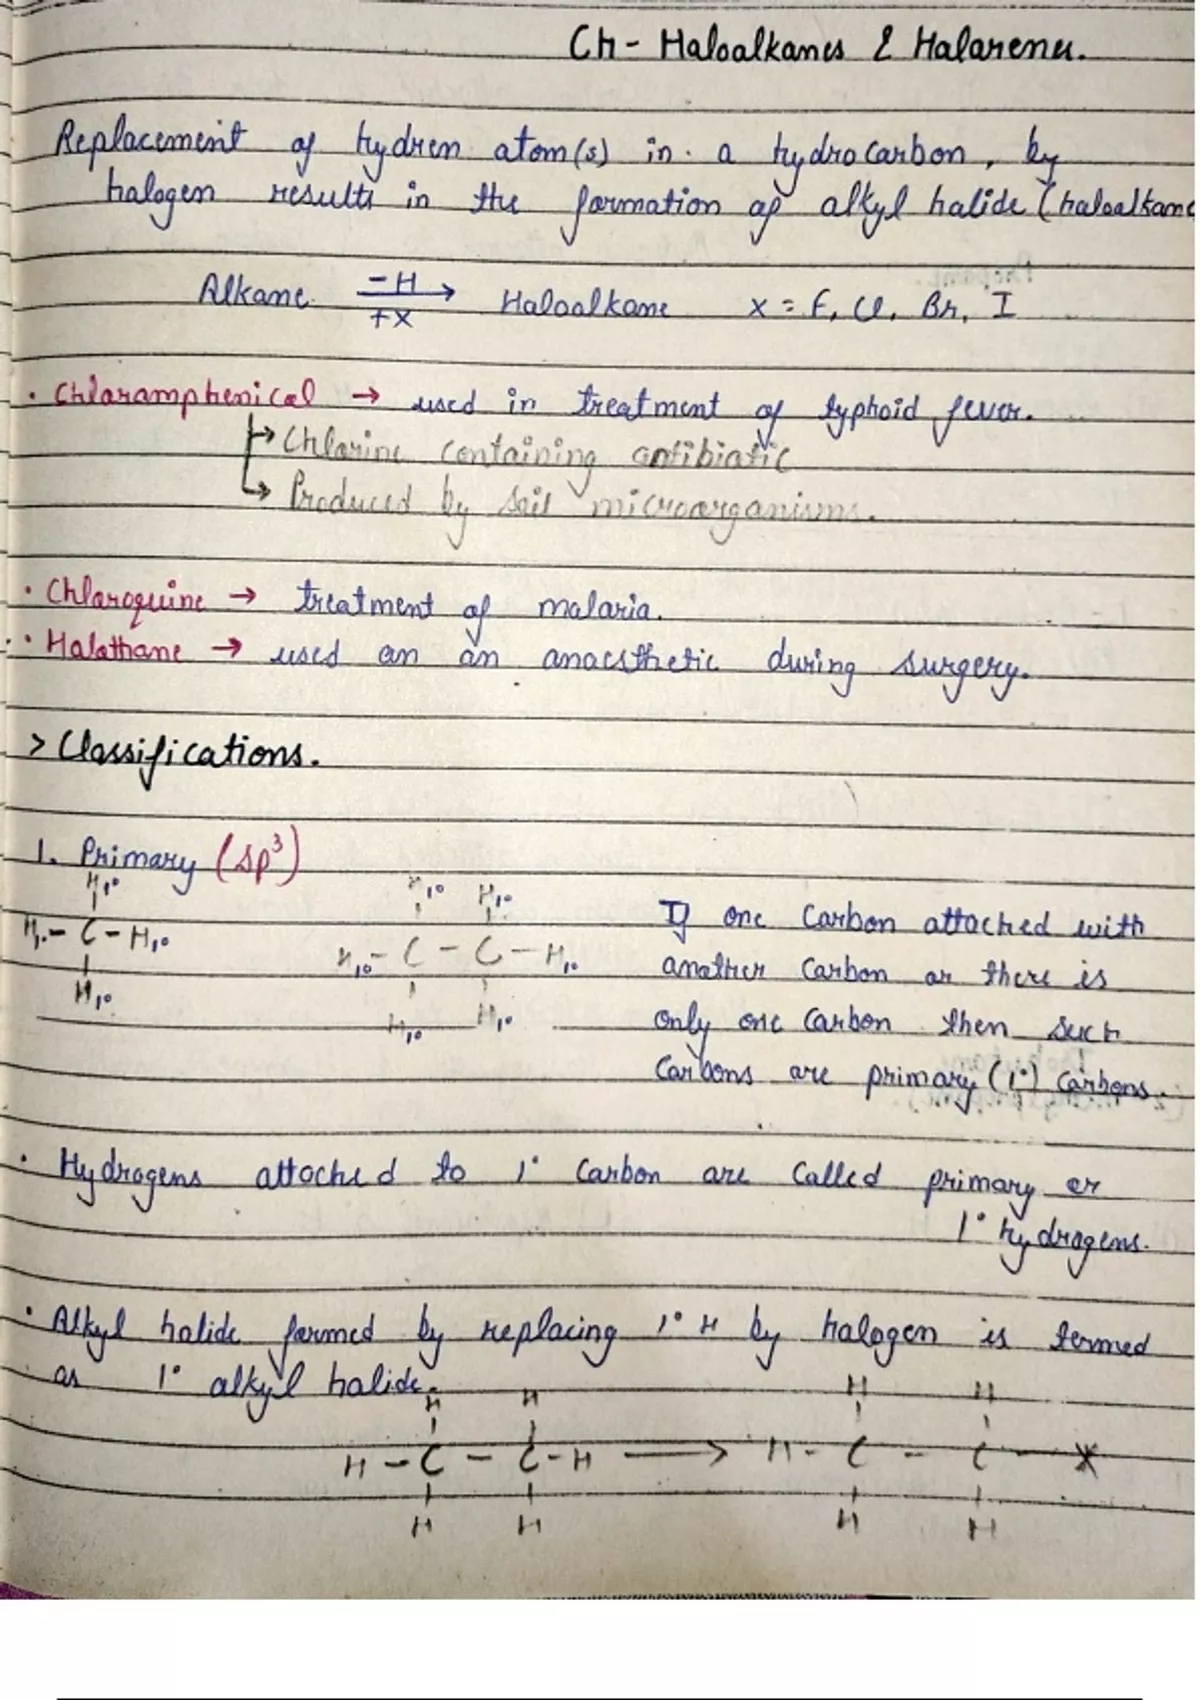 Ch - Haloalkanes & Halarenes.
Replacement of hydren atom(s) in a hydrocarbon, by
halogen results in the formation of alkyl halide (haloalkane
Alkane -H/+X → Haloalkane X = F, Cl, Br, I
• Chloramphenical → used in treatment of typhoid fever.
↳ Chlorine containing antibiotic
↳ Produced by soil microorganisms.
• Chloroquine → treatment of malaria.
• Halothane → used an an anaesthetic during surgery.
> Classifications.
1. Primary (sp³)
H1° H1° H1°
H1°- C - H1° H1°- C - C - H1°
H1° H1° H1°
If one Carbon attached with
another Carbon or there is
only one Carbon then such
Carbons are primary (1°) Carbons.
• Hydrogens attached to 1° Carbon are Called primary or
1° hydrogens.
• Alkyl halide formed by replacing 1° H by halogen is termed
as 1° alkyl halide.
H H H H
H - C - C - H ⟶ H - C - C - X
H H H H